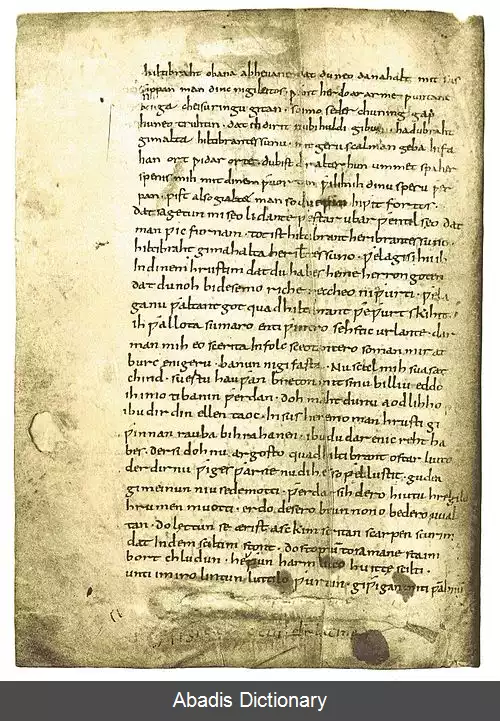 hiltibraht obana abheuane dat du neo danahalt mit sus
sippan man dinc ni gileitos · ƿant her do ar arme ƿuntane
bauga cheisuringu gitan · so imo se der chuning gap
huneo truhtin · dat ih dir it nu bi huldi gibu · hadubraht
gimalta hiltibrantes sunu · mit geru scal man geba infa
han ort ƿidar orte · du bist dir alter hun ummet spaher
spenis mih mit dinem ƿortun ƿili mih dinu speru ƿer
pan · pist also gialtet man so du hinƿit fortos ·
dat sagetun mi seolidante ƿestar ubar ƿentilseo dat
man ƿic furnam · tot ist hiltibrant heribrantes suno ·
hiltibraht gimahalta heribtes suno · ƿela gisihu ih
In dinem hrustim dat du habes heme herron goten
dat du noh bi desemo riche reccheo ni ƿurti · ƿela
ga nu ƿaltant got quad hiltibrant ƿeƿurt skihit ·
ih ƿallota sumaro enti ƿintro sehstic ur lante · dar
man mih eo scerita In folc sceotantero so man mir at
burc enigeru · banun ni gifasta · Nu scal mih suasat
chind · suertu hauƿan breton mit sinu billiu eddo
ih imo ti banin ƿerdan · doh maht du nu aodlihho
ibu dir din ellen taoc · In sus heremo man hrusti gi
ƿinnan rauba bihrahanen · ibu du dar enic reht ha
bes der si doh nu argosto quad hiltibrant ostar liuto
der dir nu ƿiges ƿarne nu dih es so ƿel lustit · gudea
gimeinun niuse de motti · ƿerdar sih dero hiutu hregilo
hrumen muotti · erdo desero brunnono bedero uual
tan · do lettun se ærist asckim scritan scarpen scurim
dat In dem sciltim stont · do stoptun tosamane staim
bort chludun · heƿun harmlicco huitte scilti ·
unti imo iro lintun luttilo ƿurtun · giƿigan miti ƿabnum
Abadis Dictionary